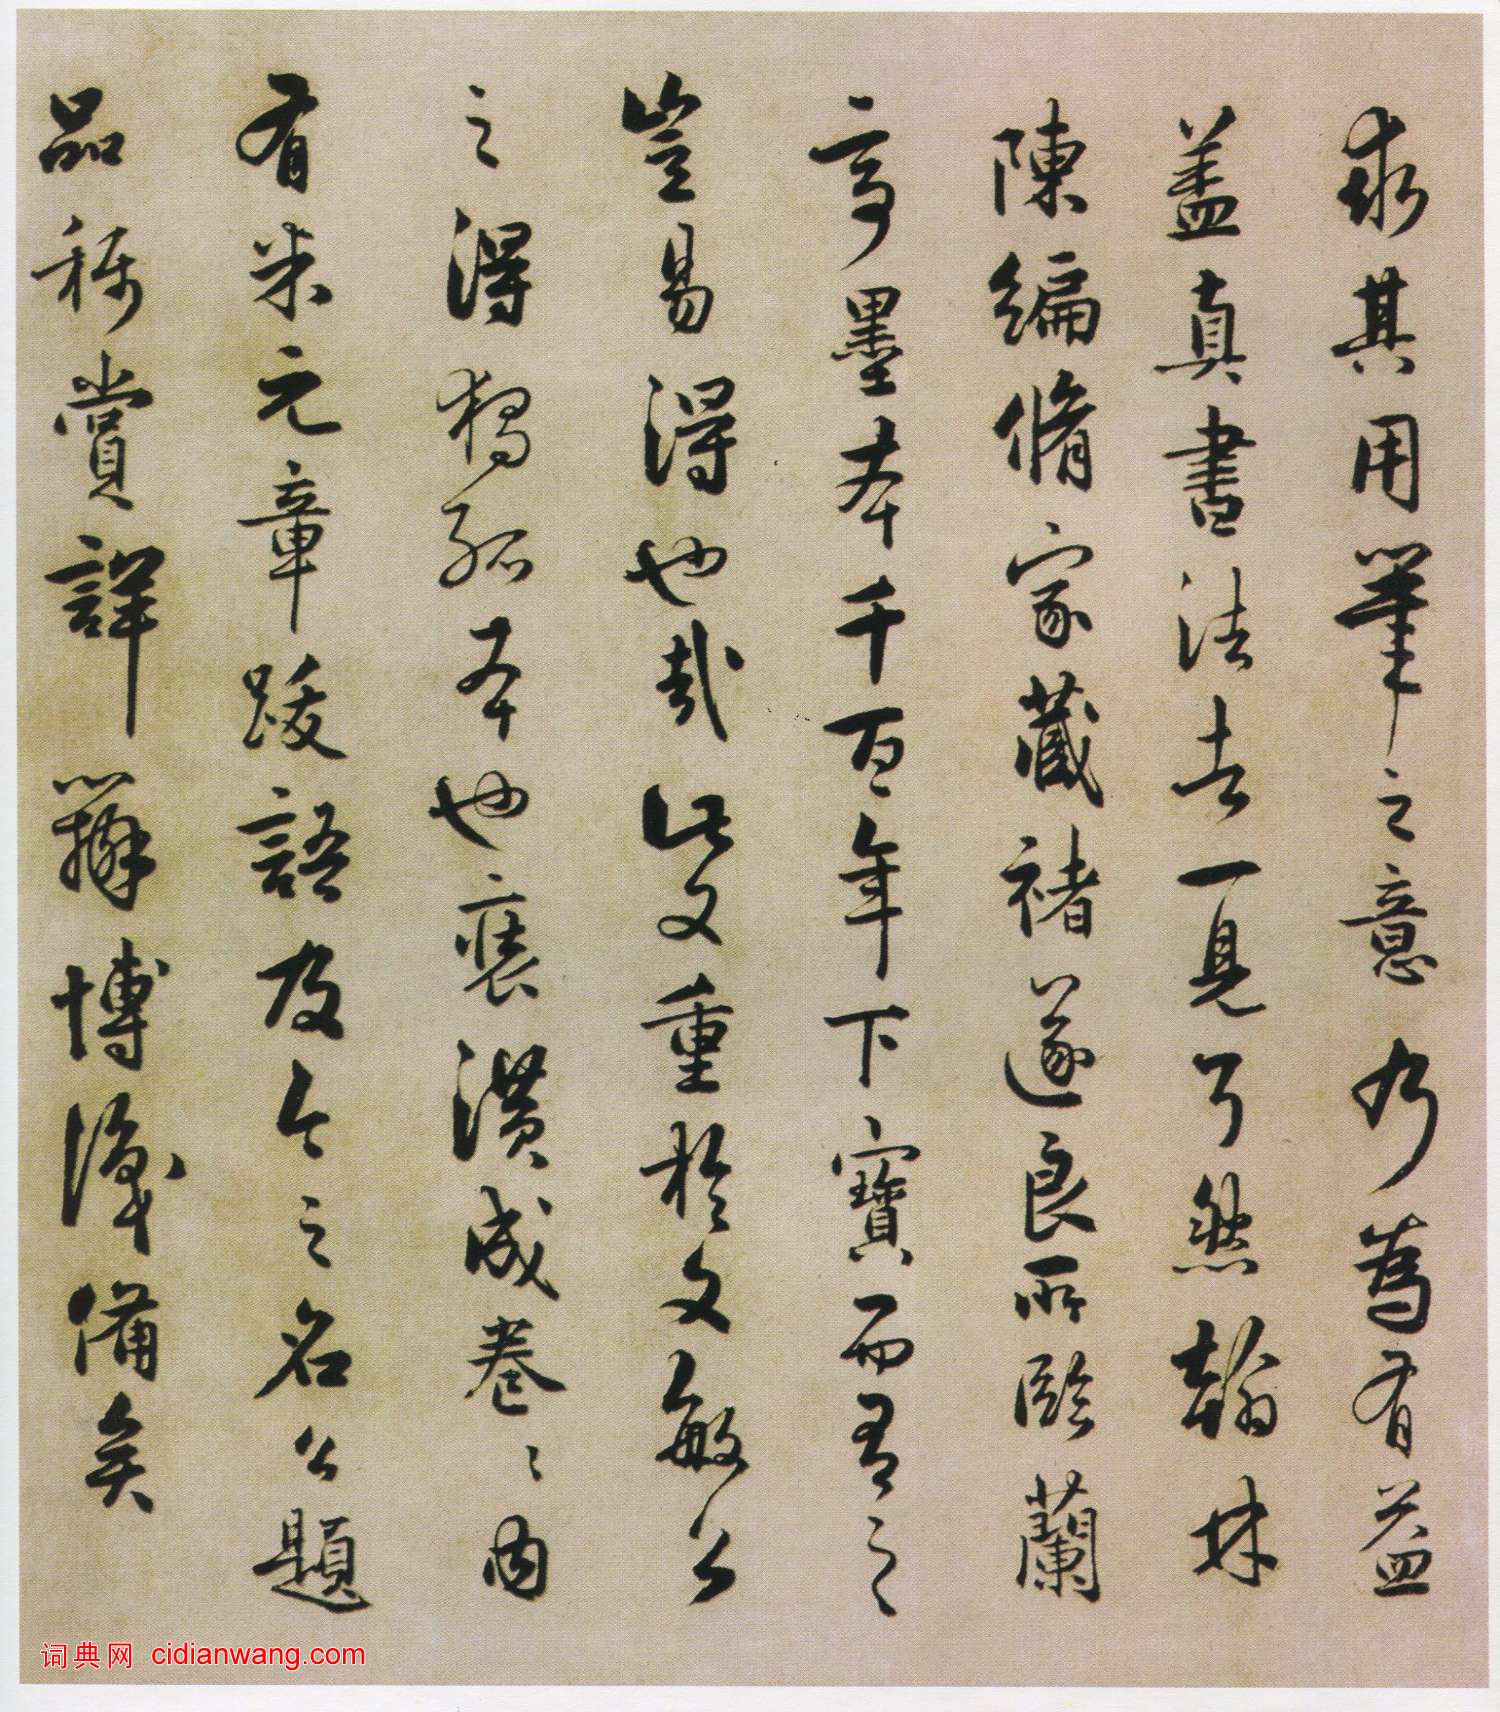 求其用筆之意乃為有益
蓋真書法去一見了然翰林
陳編脩家藏褚遂良所臨蘭
亭墨本千百年下寶而有之
豈易得也哉此文重於文敏公
之得獨孤本也裒潢成卷〻內
有米元章跋語及今之名公題
品稱賞詳辯博識備矣
词典网 cidianwang.com